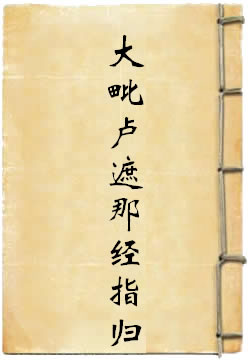 大毗卢遮那经指归